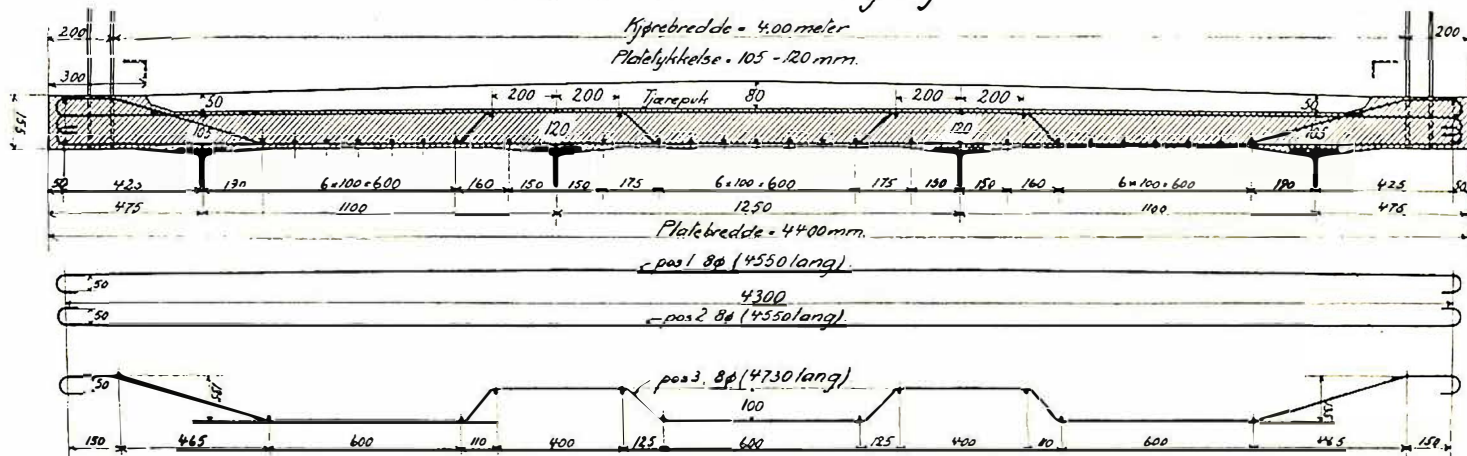 Kjørebredde = 4.00 meter
200
200
Platetykkelse = 105 - 120 mm.
300
50
200 200
Tjærepuk
80
200 200
50
155
105
120
120
105
50 425 190 6×100=600 160 150 150 175 6×100=600 175 150 150 160 6×100=600 190 425 50
475 1100 1250 1100 475
Platebredde = 4400 mm.
pos 1 8ø (4550 lang).
50
4300
50
pos 2 8ø (4550 lang).
50
pos 3, 8ø (4730 lang)
100
150 465 600 110 400 125 600 125 400 110 600 465 150